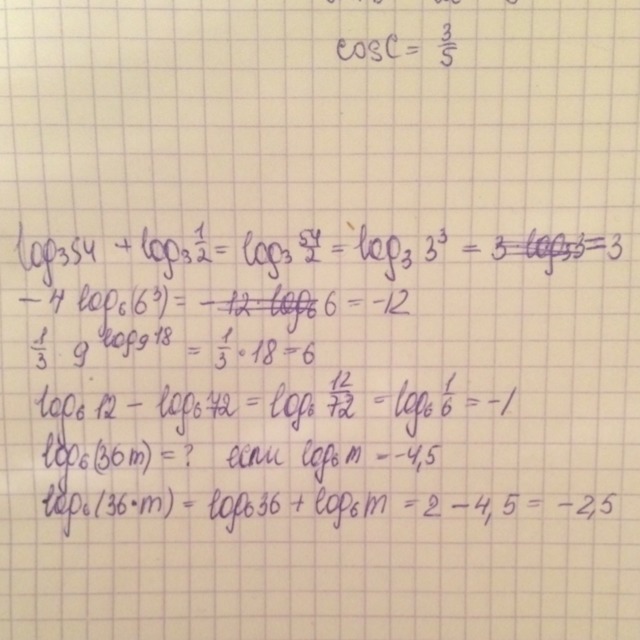 cosC = 3/5
log₃54 + log₃ 1/2 = log₃ 54/2 = log₃ 3³ = 3 log₃3 = 3
- 4 log₆(6³) = - 12 · log₆ 6 = -12
1/3 · 9^log₉18 = 1/3 · 18 = 6
log₆ 12 - log₆ 72 = log₆ 12/72 = log₆ 1/6 = -1
log₆(36m) = ? если log₆m = -4,5
log₆(36·m) = log₆36 + log₆m = 2 - 4,5 = -2,5